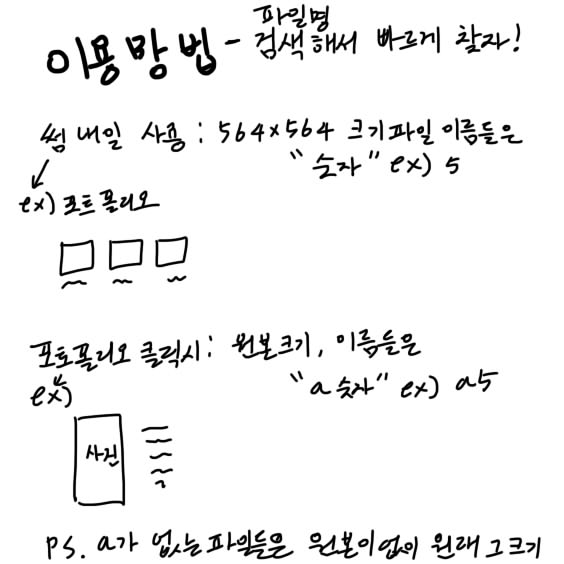 이용망법 - 파일명
검색해서 빠르게 찾자!
썸내일 사용 : 564x564 크기파일 이름들은
"숫자" ex) 5
ex) 포트폴리오
포토폴리오 클릭시 : 원본크기, 이름들은
"a숫자" ex) a5
ex)
사진
PS. a가 없는파일들은 원본이없이 원래 그크기